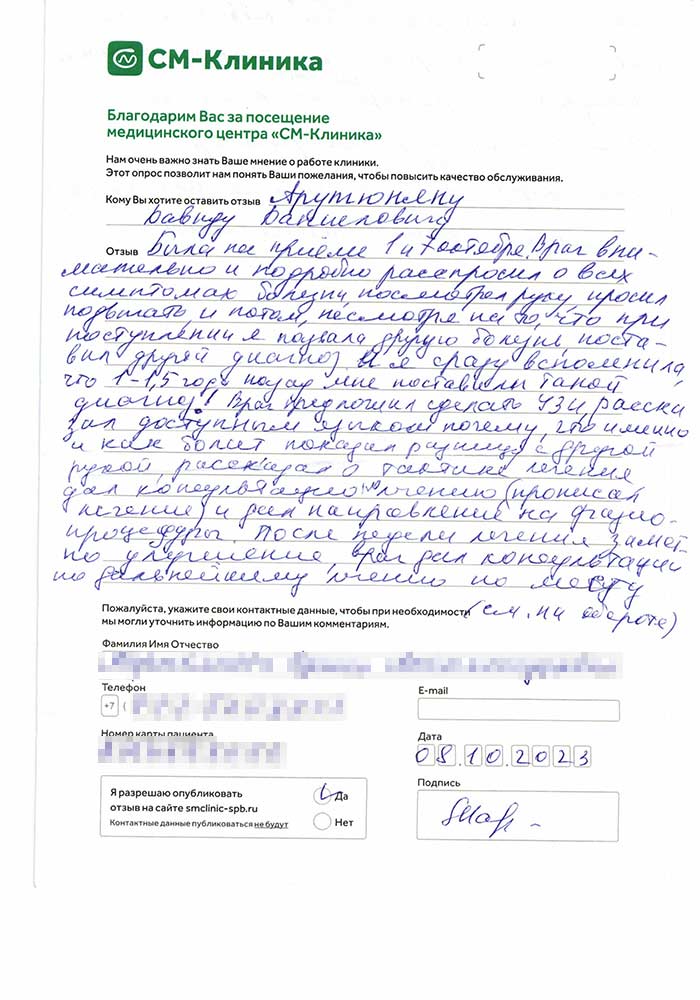 СМ-Клиника
Благодарим Вас за посещение
медицинского центра «СМ-Клиника»
Нам очень важно знать Ваше мнение о работе клиники.
Этот опрос позволит нам понять Ваши пожелания, чтобы повысить качество обслуживания.
Кому Вы хотите оставить отзыв Арутюняну
Давиду Даниеловичу
Отзыв Была на приёме 1 и 7 октября. Врач вни-
мательно и подробно расспросил о всех
симптомах болезни, посмотрел руку, просил
подвигать и потом, несмотря на то, что при
поступлении я назвала другую болезнь, поста-
вил другой диагноз и я сразу вспомнила,
что 1-1,5 года назад мне поставили такой
диагноз! Врач предложил сделать УЗИ, расска
зал доступным языком почему, что именно
и как болит показал разницу с другой
рукой, рассказал о тактике лечения
дал консультацию по лечению (прописал
лечение) и дал направление на физио-
процедуры. После недели лечения замет-
но улучшение, врач дал консультации
по дальнейшему лечению по месту
(см. на обороте)
Пожалуйста, укажите свои контактные данные, чтобы при необходимости
мы могли уточнить информацию по Вашим комментариям.
Фамилия Имя Отчество
Телефон
+7 (
E-mail
Номер карты пациента
Дата
08.10.2023
Я разрешаю опубликовать
отзыв на сайте smclinic-spb.ru
Контактные данные публиковаться не будут
Да
Нет
Подпись